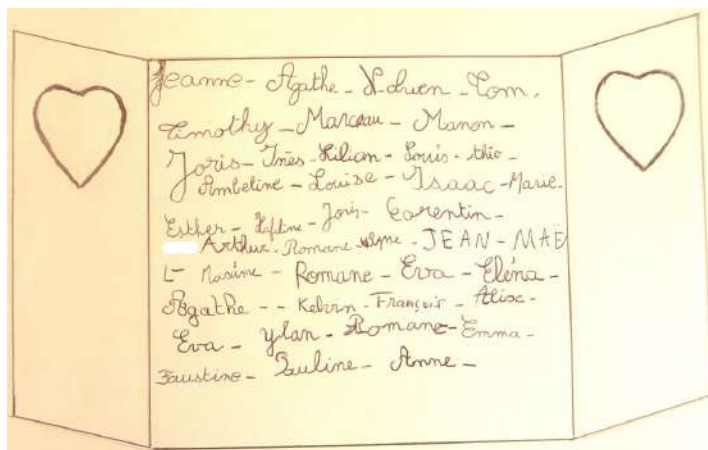 Jeanne - Agathe - Adrien - Tom.
Timothy - Marceau - Manon -
Joris - Inès - Lilian - Louis - théo -
Ambeline - Louise - Isaac - Marie.
Esther - Joris - Corentin -
Arthur - Romane - JEAN - MAË
L - Maxime - Romane - Eva - Eléna -
Agathe - - Kelvin - François - Alixe -
Eva - Ylan - Romane - Emma -
Faustine - Pauline - Anne -